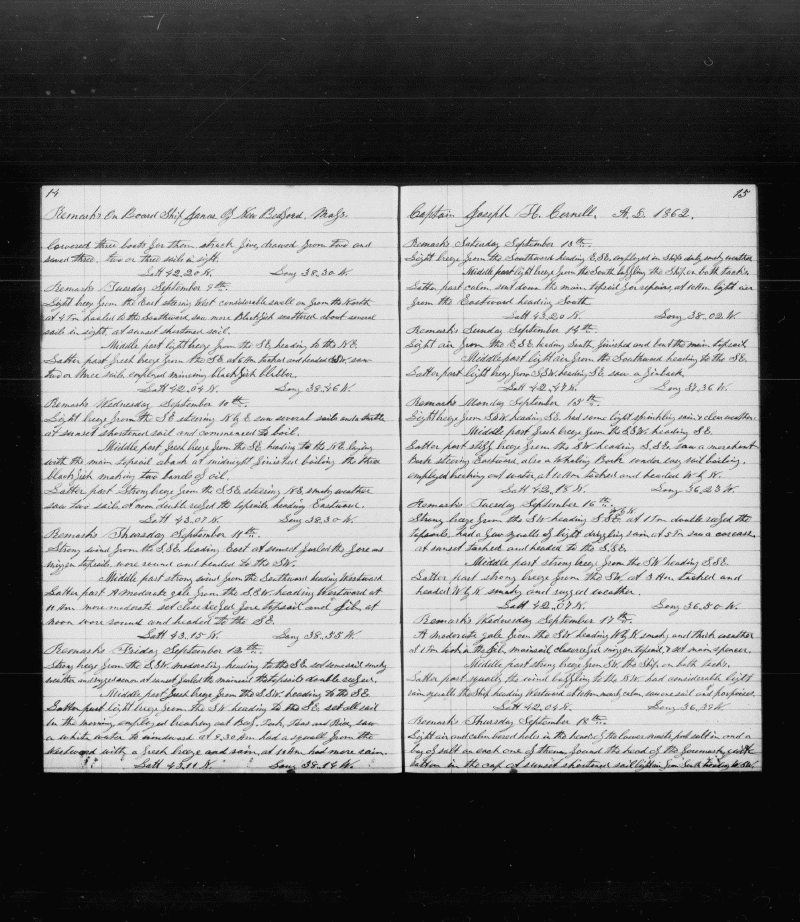 14
Remarks On Board Ship Of New Bedford, Mass.
lowered three boats for them struck five, drawed from two and
saved three, two or three sails in sight.
Latt 42.20 N. Long 38.30 W.
Remarks Tuesday September 9th.
Light breeze from the East steering West considerable swell on from the North
at 4 Pm hauled to the Southward, saw more Blackfish scattered about several
sails in sight, at sunset shortened sail.
Middle part light breeze from the SE heading to the NE
Latter part fresh breeze from the SE at tacked and headed saw
two or three sails employed mincing blackfish blubber.
Latt 42.04 N. Long 38.46 W.
Remarks Wednesday September 10th.
Light breeze from the SE steering N b E saw several sails and a
at sunset shortened sail and commenced to boil.
Middle part fresh breeze from the SE heading to the NE laying
with the main topsail aback at midnight finished boiling the three
blackfish making two bbls of oil.
Latter part Strong breeze from the SSE steering NE, smoky weather
saw two sails. At noon double reefed the topsails heading Eastward.
Latt 43.07 N. Long 38.30 W.
Remarks Thursday September 11th.
Strong wind from the SSE heading East at sunset furled the fore and
mizzen topsails wore round and headed to the SW.
Middle part strong wind from the Southward heading Westward
Latter part A moderate gale from the SSW heading Westward at
11 Am more moderate set close reefed fore topsail and jib, at
noon wore round and headed to the SE.
Latt 43.15 N. Long 38.55 W.
Remarks Friday September 12th.
Strong breeze from the SSW moderating heading to the SE set some sail smoky
weather and rugged at sunset furled the mainsail the topsails double reefed.
Middle part fresh breeze from the SSW heading to the SE.
Latter part light breeze from the SW heading to the SE set all sail
in the morning employed breaking out Beef, Pork, Peas and Rice, saw
a white water to windward at 9.30 Am had a squall from the
Westward with a fresh breeze and rain, at 11 Am had more rain.
Latt 43.11 N. Long 38.14 W.
15
Captain Joseph H. Cornell, A.D. 1862.
Remarks Saturday September 13th.
Light breeze from the Southward heading ESE, employed in Ships duty smoky weather
Middle part light breeze from the South luffing the Ship on both tacks.
Latter part calm, sent down the main topsail for repairs, at 10 Am light air
from the Eastward heading South
Latt 43.20 N. Long 38.02 W.
Remarks Sunday September 14th.
Light air from the ESE heading South, finished and bent the main topsail
Middle part light air from the Southward heading to the SE.
Latter part light breeze from SSW heading SE saw a finback
Latt 42.47 N. Long 37.36 W.
Remarks Monday September 15th.
Light breeze from SSW heading SE had some light sprinkling rain & clear weather.
Middle part fresh breeze from the SSW heading SE.
Latter part stiff breeze from the SW heading SSE. saw a merchant
Bark steering Eastward, also a Whaling Bark under easy sail boiling.
employed breaking out water at 10 Am tacked and headed W b N.
Latt 42.18 N. Long 36.23 W.
Remarks Tuesday September 16th.
W b N
Strong breeze from the SW heading SSE at 1 Pm double reefed the
topsails, had a few squalls of light drizzling rain at 5 Pm saw a carcase.
at sunset tacked and headed to the SSE.
Middle part strong breeze from the SW heading SSE.
Latter part strong breeze from the SW. at 3 Am tacked and
headed W b N smoky and rugged weather.
Latt 42.07 N. Long 36.50 W.
Remarks Wednesday September 17th.
A moderate gale from the SW heading W b N smoky and thick weather
at 1 Pm took in the jib, mainsail close reefed mizzen topsail, & set main spencer.
Middle part strong breeze from SW. the Ship on both tacks.
Latter part squally the wind baffling to the NW. had considerable light
rain squalls the Ship heading Westward at 10 Am nearly calm, saw one sail and porpoises.
Latt 42.04 N. Long 36.39 W.
Remarks Thursday September 18th.
Light air and calm bored holes in the heads of the lower masts, put salt in and a
bag of salt on each one of them, around the head of the foremast, quite
rotten in the cap at sunset shortened sail light air from South heading to SW.